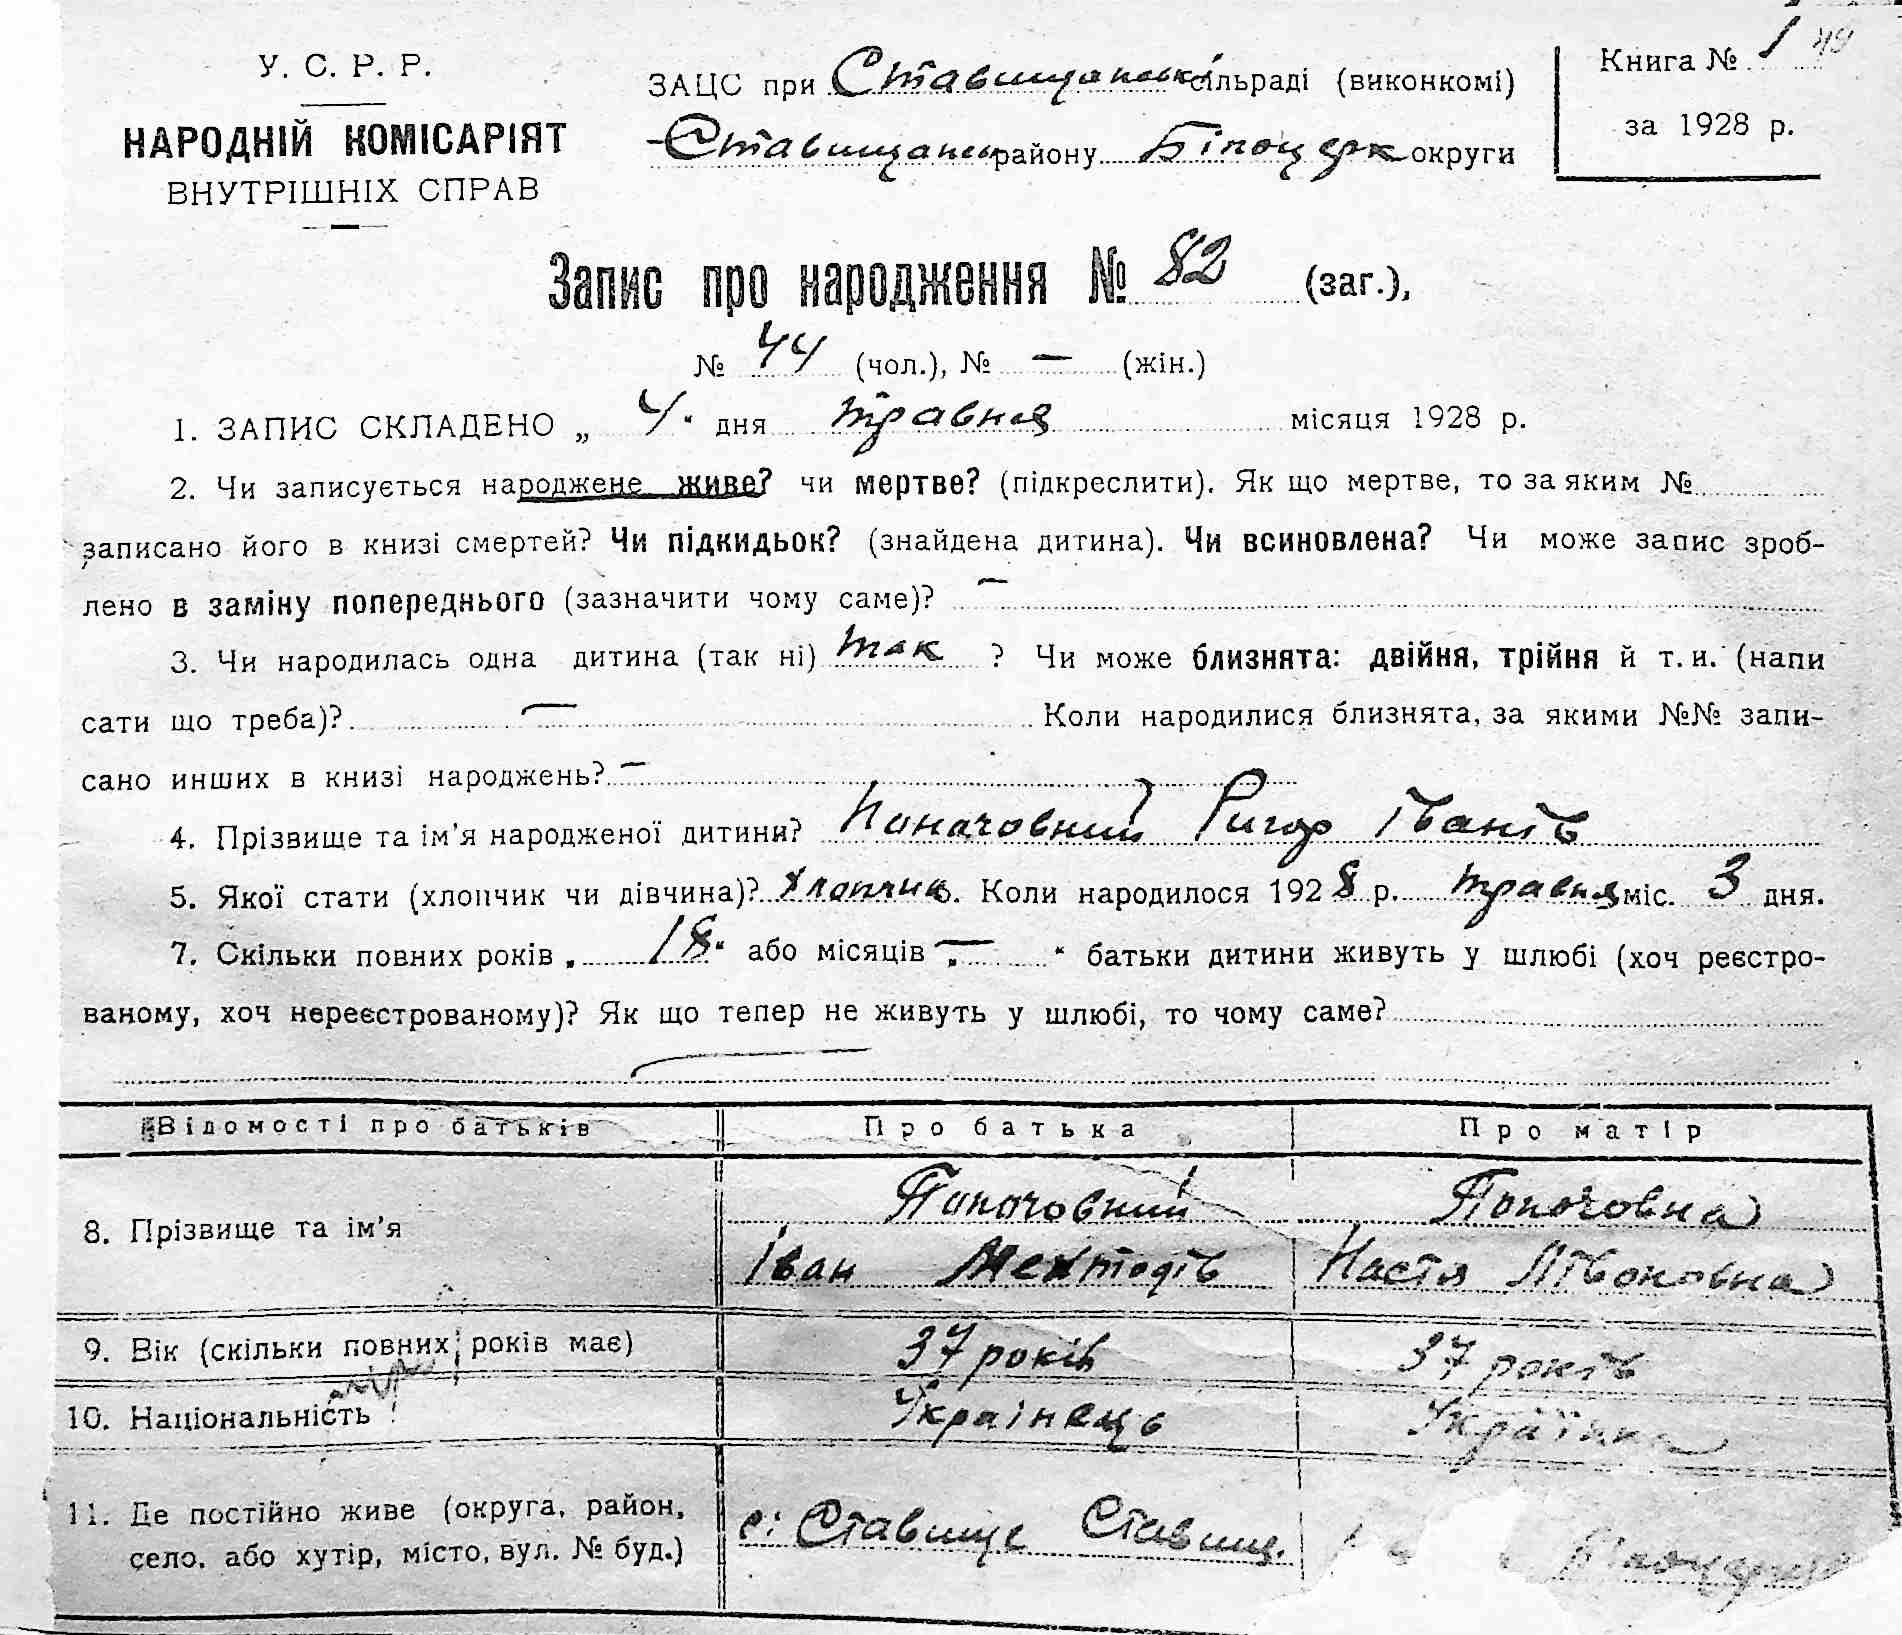 У. С. Р. Р.
НАРОДНІЙ КОМІСАРІЯТ
ВНУТРІШНІХ СПРАВ
ЗАЦС при Ставищанській сільраді (виконкомі)
Ставищансь району Білоцерк округи
Книга № 1 49
за 1928 р.
Запис про народження № 82 (заг.),
№ 44 (чол.), № — (жін.)
1. ЗАПИС СКЛАДЕНО „ 4 " дня травня місяця 1928 р.
2. Чи записується народжене живе? чи мертве? (підкреслити). Як що мертве, то за яким №
записано його в книзі смертей? Чи підкидьок? (знайдена дитина). Чи всиновлена? Чи може запис зроб-
лено в заміну попереднього (зазначити чому саме)? —
3. Чи народилась одна дитина (так ні) так ? Чи може близнята: двійня, трійня й т. и. (напи
сати що треба)? — Коли народилися близнята, за якими №№ запи-
сано инших в книзі народжень? —
4. Прізвище та ім'я народженої дитини? Ригор Іванів
5. Якої стати (хлопчик чи дівчина)? Хлопчик. Коли народилося 1928 р. травня міс. 3 дня.
7. Скільки повних років „ 18 " або місяців „ — " батьки дитини живуть у шлюбі (хоч реєстро-
ваному, хоч нереєстрованому)? Як що тепер не живуть у шлюбі, то чому саме?
—
Відомості про батьків Про батька Про матір
8. Прізвище та ім'я
Іван Настя
9. Вік (скільки повних років має) 37 років 37 років
10. Національність Українець Українка
11. Де постійно живе (округа, район,
село, або хутір, місто, вул. № буд.)
с: Ставище Ставищ.